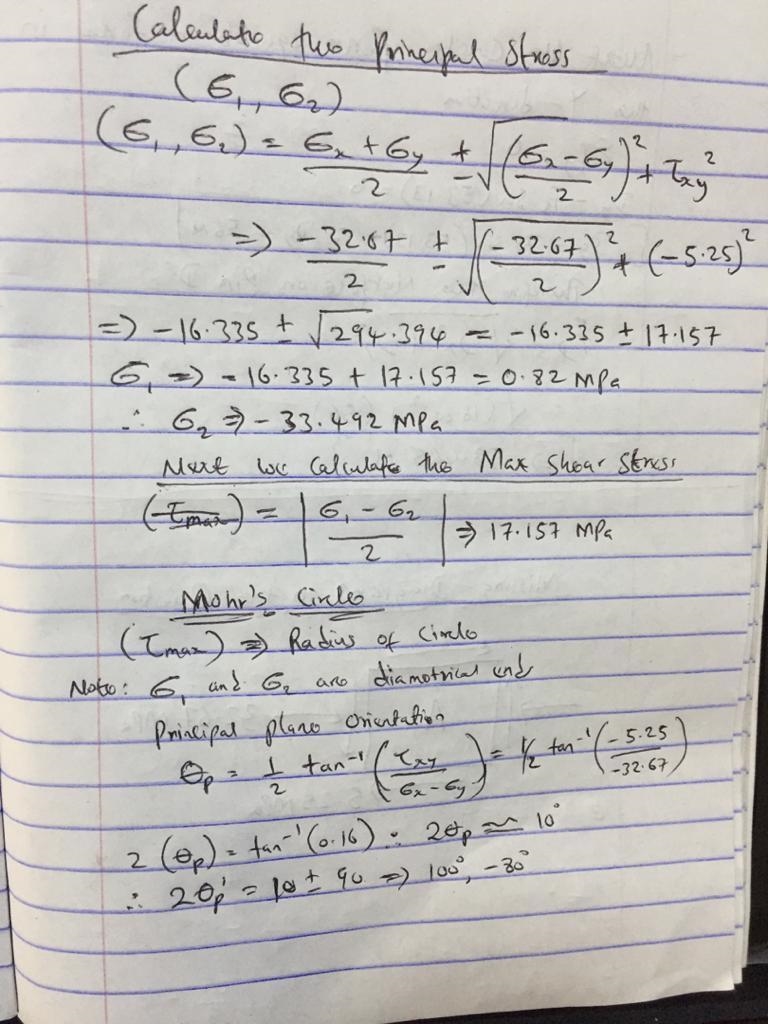 Calculate two Principal Stress
(σ₁, σ₂)
(σ₁, σ₂) = (σx + σy)/2 ± √(((σx − σy)/2)² + τxy²)
⇒ −32.67/2 ± √((−32.67/2)² + (−5.25)²)
⇒ −16.335 ± √294.394 = −16.335 ± 17.157
σ₁ ⇒ −16.335 + 17.157 = 0.82 MPa
∴ σ₂ ⇒ −33.492 MPa
Next we Calculate the Max Shear Stress
(τmax) = |(σ₁ − σ₂)/2| ⇒ 17.157 MPa
Mohr's Circle
(τmax) ⇒ Radius of Circle
Note: σ₁ and σ₂ are diametrical ends
Principal plane Orientation
θp = 1/2 tan⁻¹(τxy/(σx − σy)) = 1/2 tan⁻¹(−5.25/−32.67)
2(θp) = tan⁻¹(0.16) ∴ 2θp ≃ 10°
∴ 2θp' = 10 ± 90 ⇒ 100°, −80°